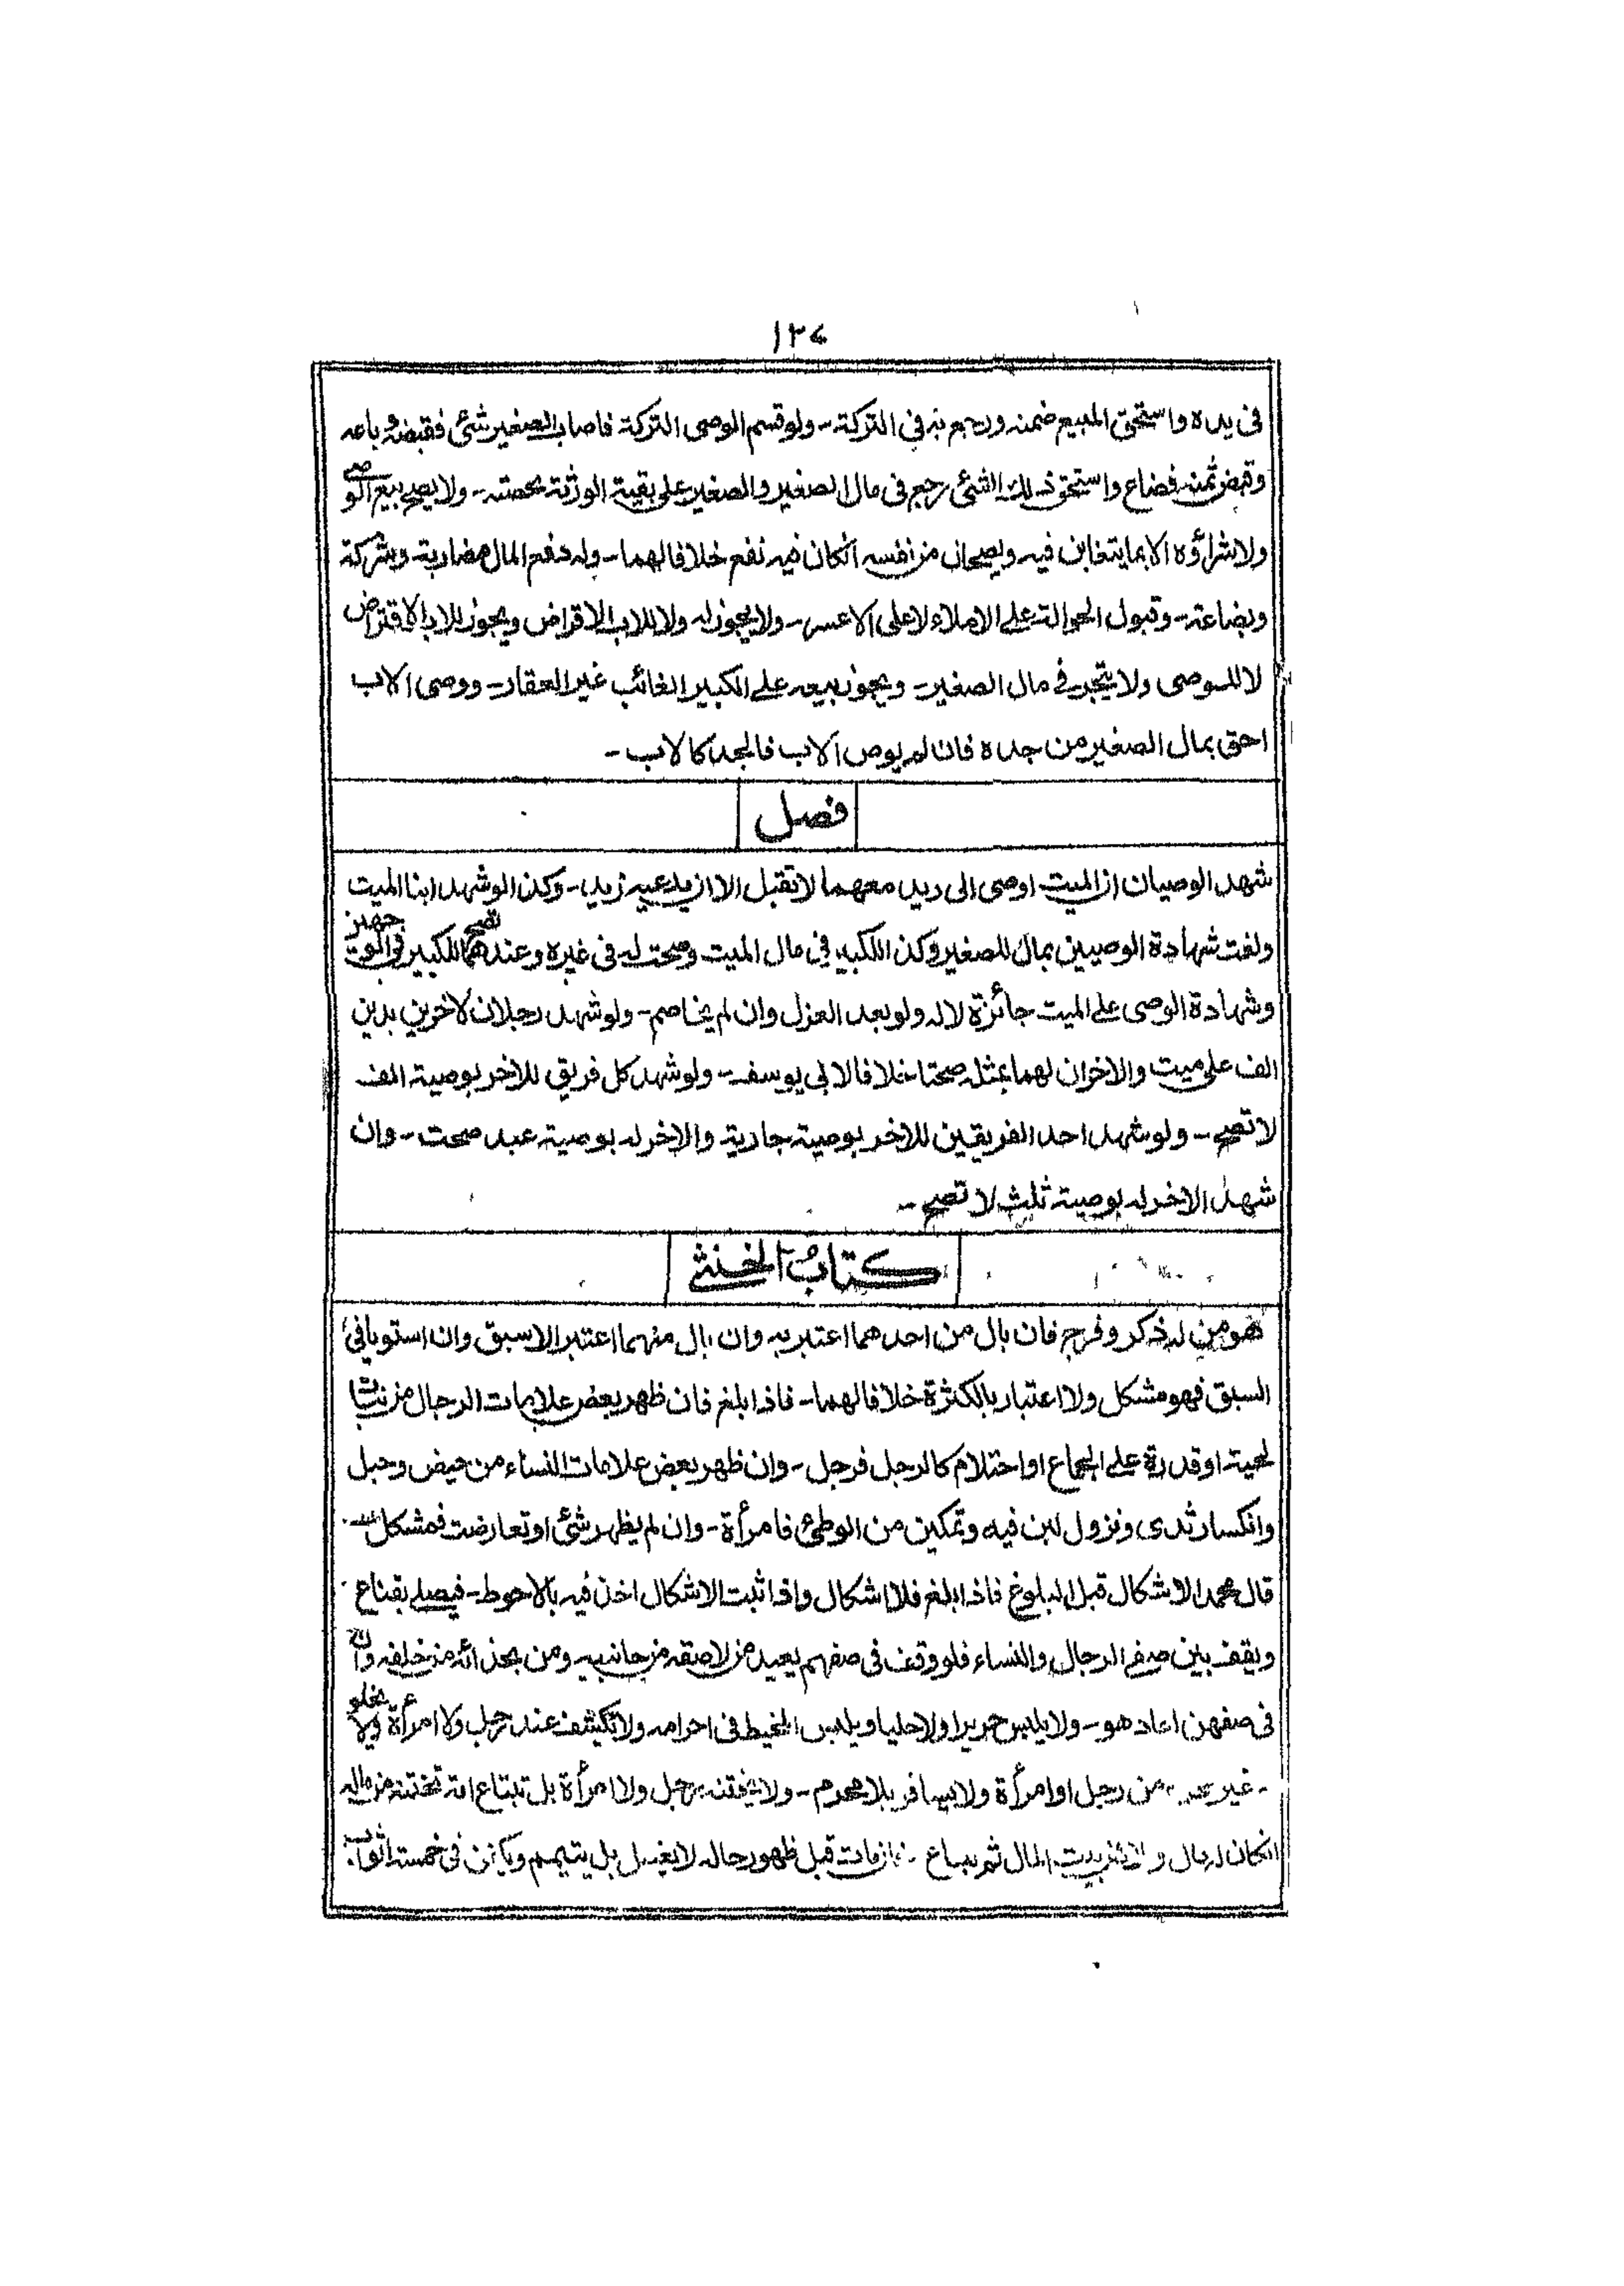 ١٢٧
فى يده واستحق المبيع ضمنه ورجع به فى التركة - ولو قسم الوصى التركة فاصاب الصغير شئ فقبضه وباعه
وقبض ثمنه فضاع واستحق ذلك الشئ رجع فى مال الصغير والصغير على بقية الورثة بحصته - ولا يصح بيع الوصى
ولا شراؤه الا بما يتغابن فيه ويصحان من نفسه انكان فيه نفع خلافا لهما - وله دفع المال مضاربة وشركة
وبضاعة - وقبول الحوالة على الاملاء لا على الاعسر - ولا يجوز له ولا للاب الاقراض ويجوز للاب الاقتراض
لا للوصى ولا يتجر فى مال الصغير - ويجوز بيعه على الكبير الغائب غير العقار - ووصى الاب
احق بمال الصغير من جده فان لم يوص الاب فالجد كالاب -
فصل
شهد الوصيان ان الميت اوصى الى زيد معهما لا تقبل الا ان يدعيه زيد - وكذا لو شهد ابنا الميت
ولغت شهادة الوصيين بمال للصغير وكذا للكبير فى مال الميت وصحت له فى غيره وعندهما تصح للكبير فى الوجهين
وشهادة الوصى على الميت جائزة لا له ولو بعد العزل وان لم يخاصم - ولو شهد رجلان لاخرين بدين
الف على ميت والاخران لهما بمثله صحتا خلافا لابى يوسف - ولو شهد كل فريق للاخر بوصية الف
لا تصح - ولو شهد احد الفريقين للاخر بوصية جارية والاخر له بوصية عبد صحت - وان
شهد الاخر له بوصية ثلث لا تصح -
كتابُ الخنثى
هو من له ذكر وفرج فان بال من احدهما اعتبر به وان بال منهما اعتبر الاسبق وان استويا فى
السبق فهو مشكل ولا اعتبار بالكثرة خلافا لهما - فاذا بلغ فان ظهر بعض علامات الرجال من نبات
لحية او قدرة على الجماع او احتلام كالرجل فرجل - وان ظهر بعض علامات النساء من حيض وحبل
وانكسار ثدى ونزول لبن فيه وتمكين من الوطئ فامرأة - وان لم يظهر شئ او تعارضت فمشكل -
قال محمد الاشكال قبل البلوغ فاذا بلغ فلا اشكال واذا ثبت الاشكال اخذ فيه بالاحوط - فيصلى بقناع
ويقف بين صف الرجال والنساء فلو وقف فى صفهم يعيد من لاصقه من جانبيه ومن بحذائه من خلفه وان
فى صفهن اعاد هو - ولا يلبس حريرا ولا حليا ويلبس المخيط فى احرامه ولا تكشف عند رجل ولا امرأة ولا يخلو
غير محرم من رجل او امرأة ولا يسافر بلا محرم - ولا يختنه رجل ولا امرأة بل تبتاع امة تختنه من ماله
انكان له مال والا فمن بيت المال ثم تباع فان مات قبل ظهور حاله لا يغسل بل يتيمم ويكفن فى خمسة اثواب